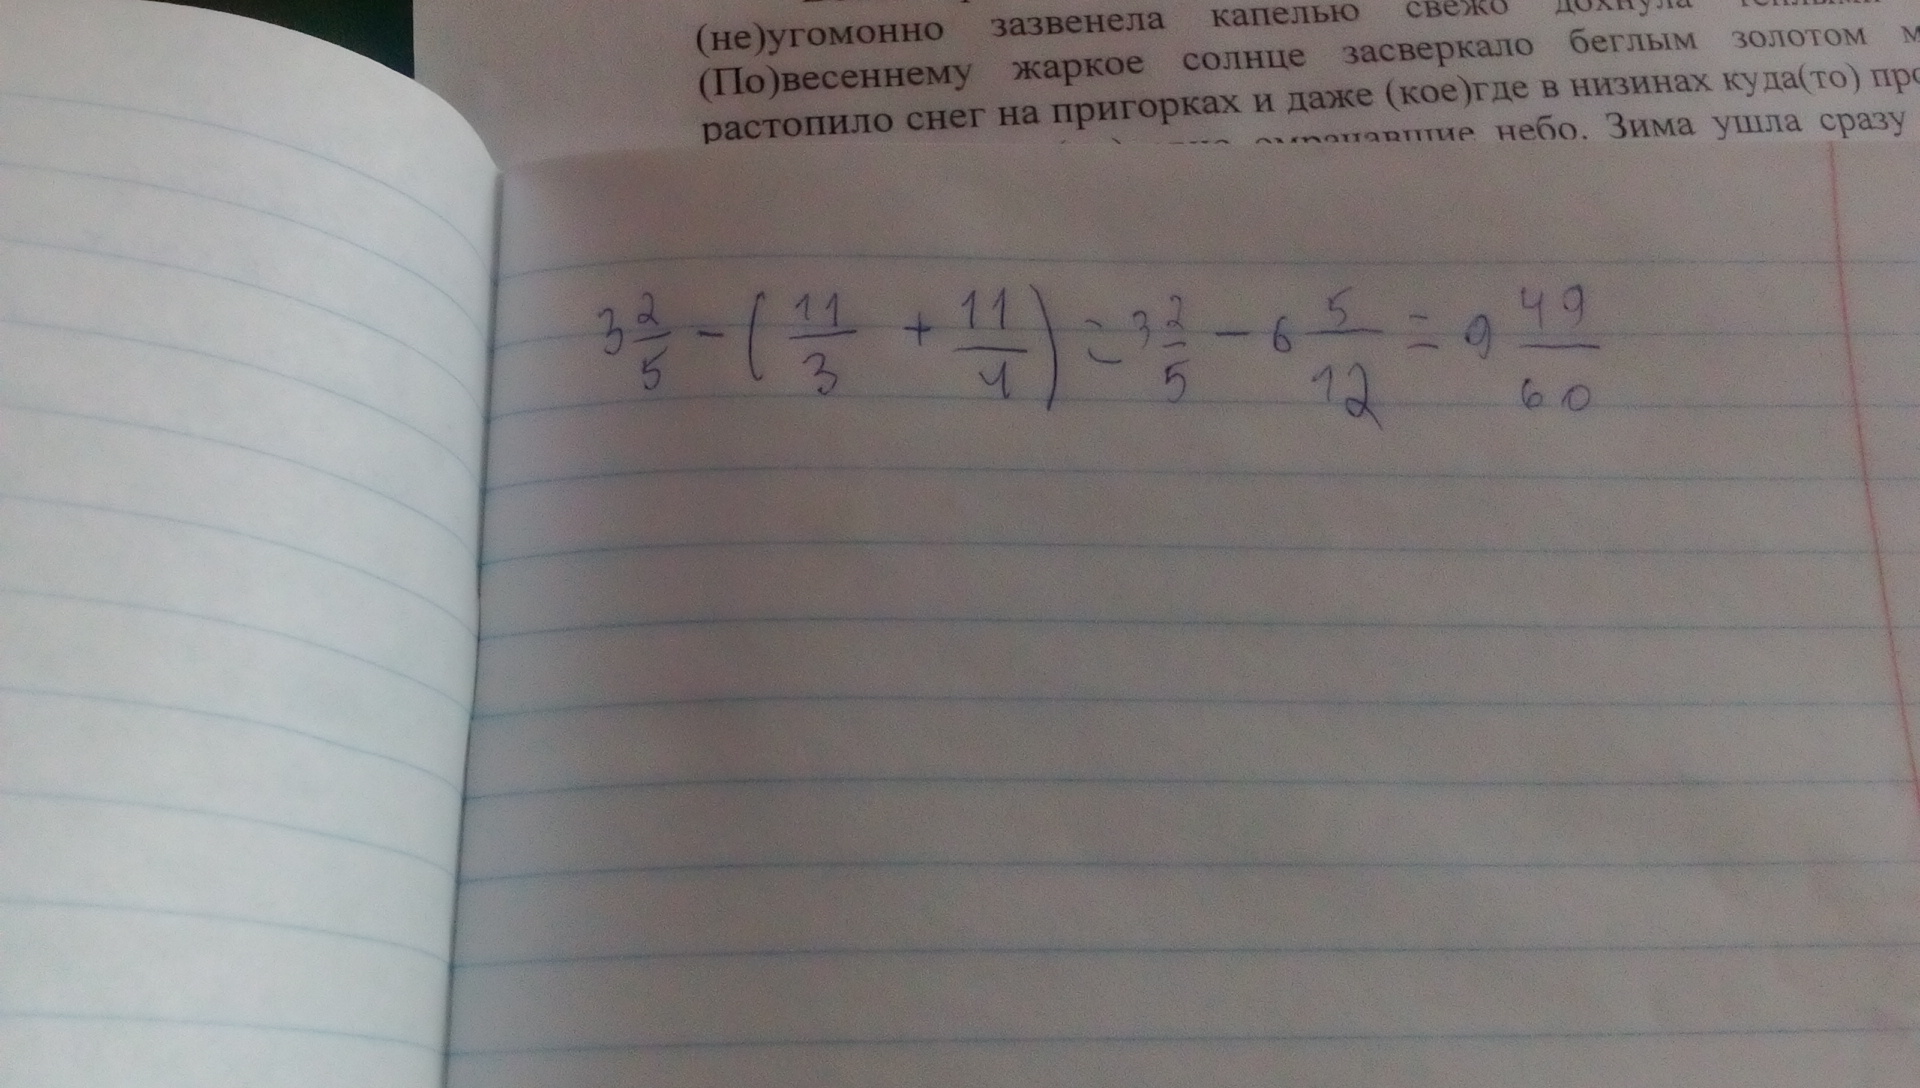 (не)угомонно зазвенела капелью свежо дохнула
(По)весеннему жаркое солнце засверкало беглым золотом м
растопило снег на пригорках и даже (кое)где в низинах куда(то) про
омрачавшие небо. Зима ушла сразу
3 2/5 - (11/3 + 11/4) = 3 2/5 - 6 5/12 = 9 49/60